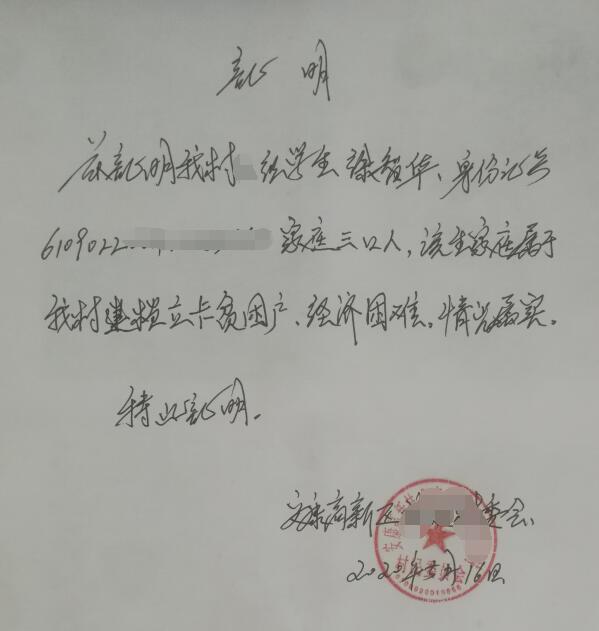 证明
兹证明我村 组学生梁智华、身份证号
6109022 家庭三口人，该生家庭属于
我村建档立卡贫困户、经济困难。情况属实。
特此证明。
安康高新区 委会
2020年 月16日